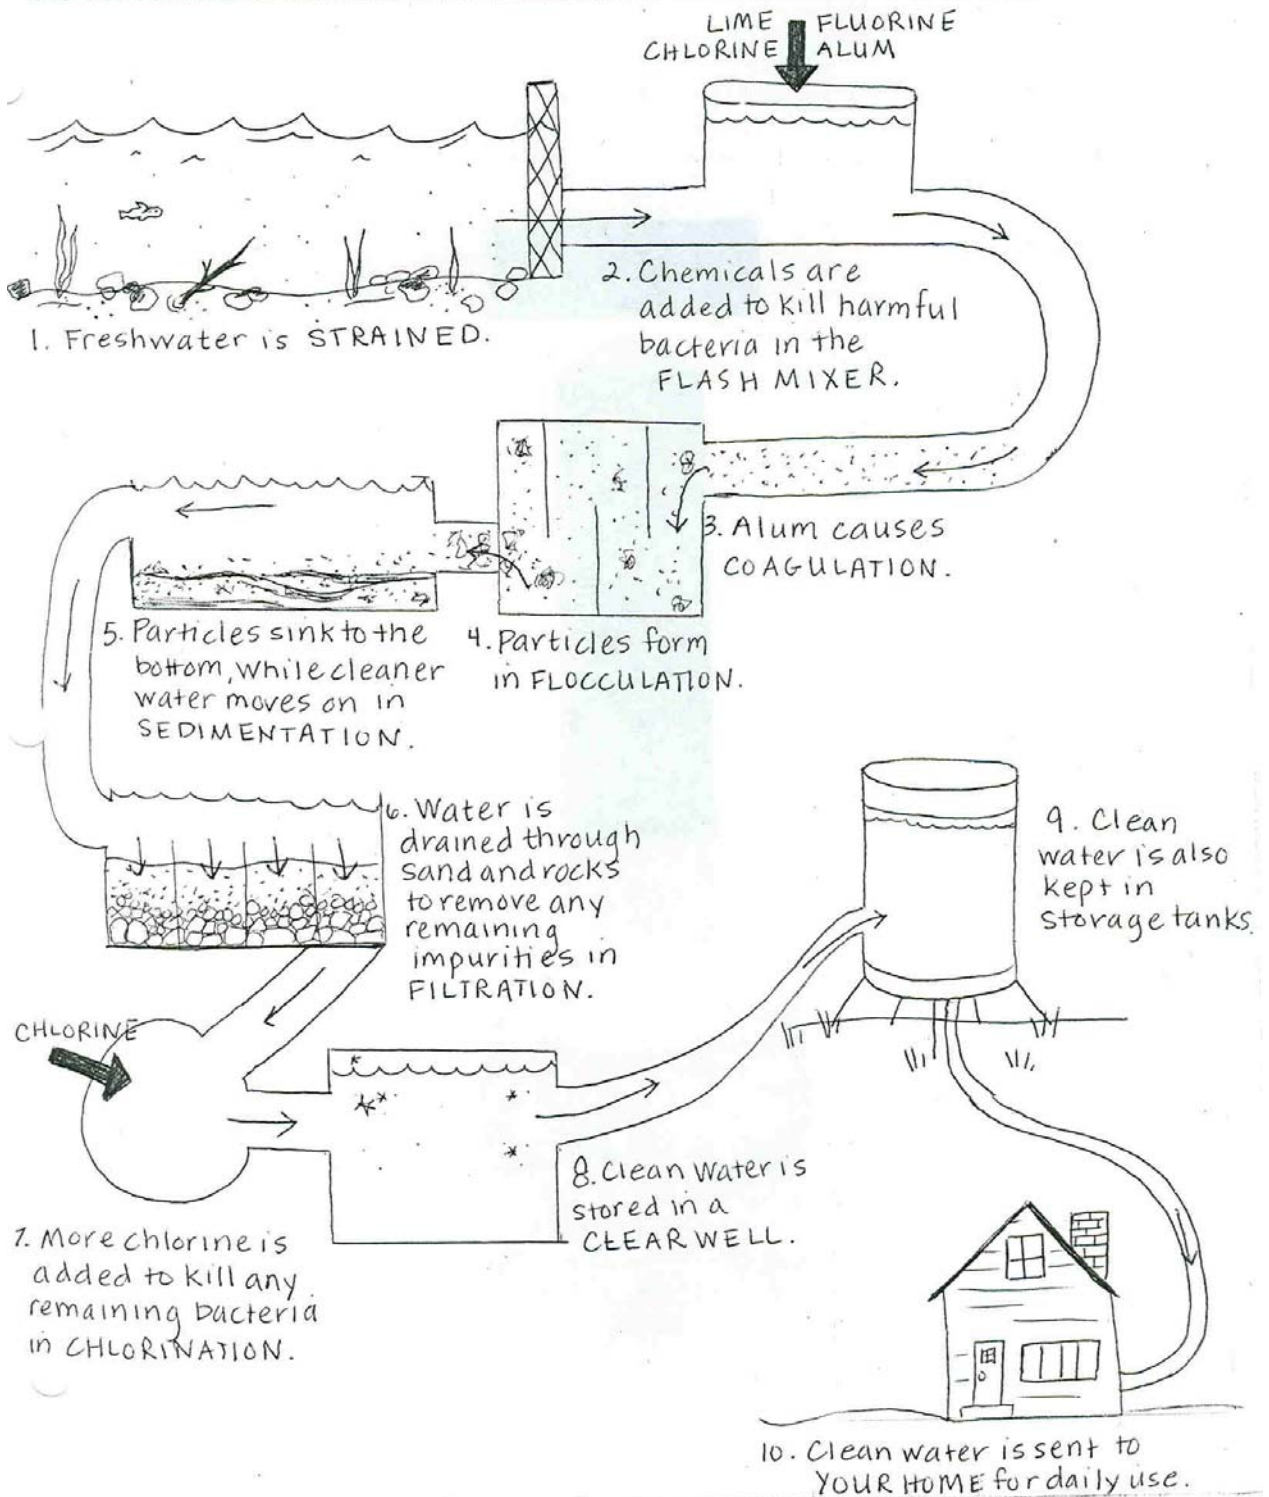 LIME FLUORINE
CHLORINE ALUM
1. Freshwater is STRAINED.
2. Chemicals are
added to kill harmful
bacteria in the
FLASH MIXER.
3. Alum causes
COAGULATION.
4. Particles form
in FLOCCULATION.
5. Particles sink to the
bottom, while cleaner
water moves on in
SEDIMENTATION.
6. Water is
drained through
sand and rocks
to remove any
remaining
impurities in
FILTRATION.
CHLORINE
7. More chlorine is
added to kill any
remaining bacteria
in CHLORINATION.
8. Clean water is
stored in a
CLEARWELL.
9. Clean
water is also
kept in
storage tanks.
10. Clean water is sent to
YOUR HOME for daily use.